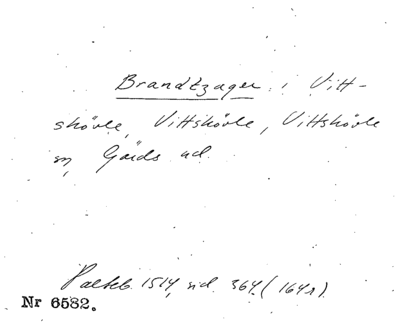 Brandtzager i Vitt-
skövle, Vittskövle, Vittskövle
sn, Gärds hd.
Palteb. 1514, sid. 364 (164r).
Nr 6582.